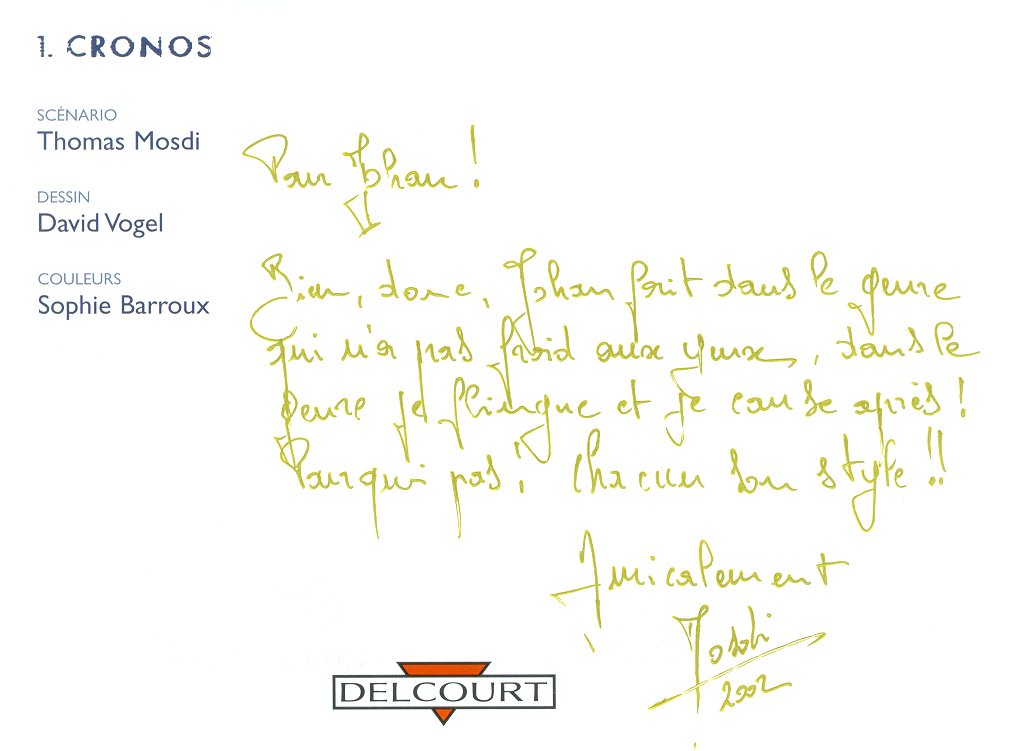 1. CRONOS
SCÉNARIO
Thomas Mosdi
DESSIN
David Vogel
COULEURS
Sophie Barroux
Pour Johan !
Bien, donc, Johan fait dans le genre
qui n'a pas froid aux yeux, dans le
genre je flingue et je cause après !
Pourquoi pas ! Chacun son style !!
Amicalement
Mosdi
2002
DELCOURT